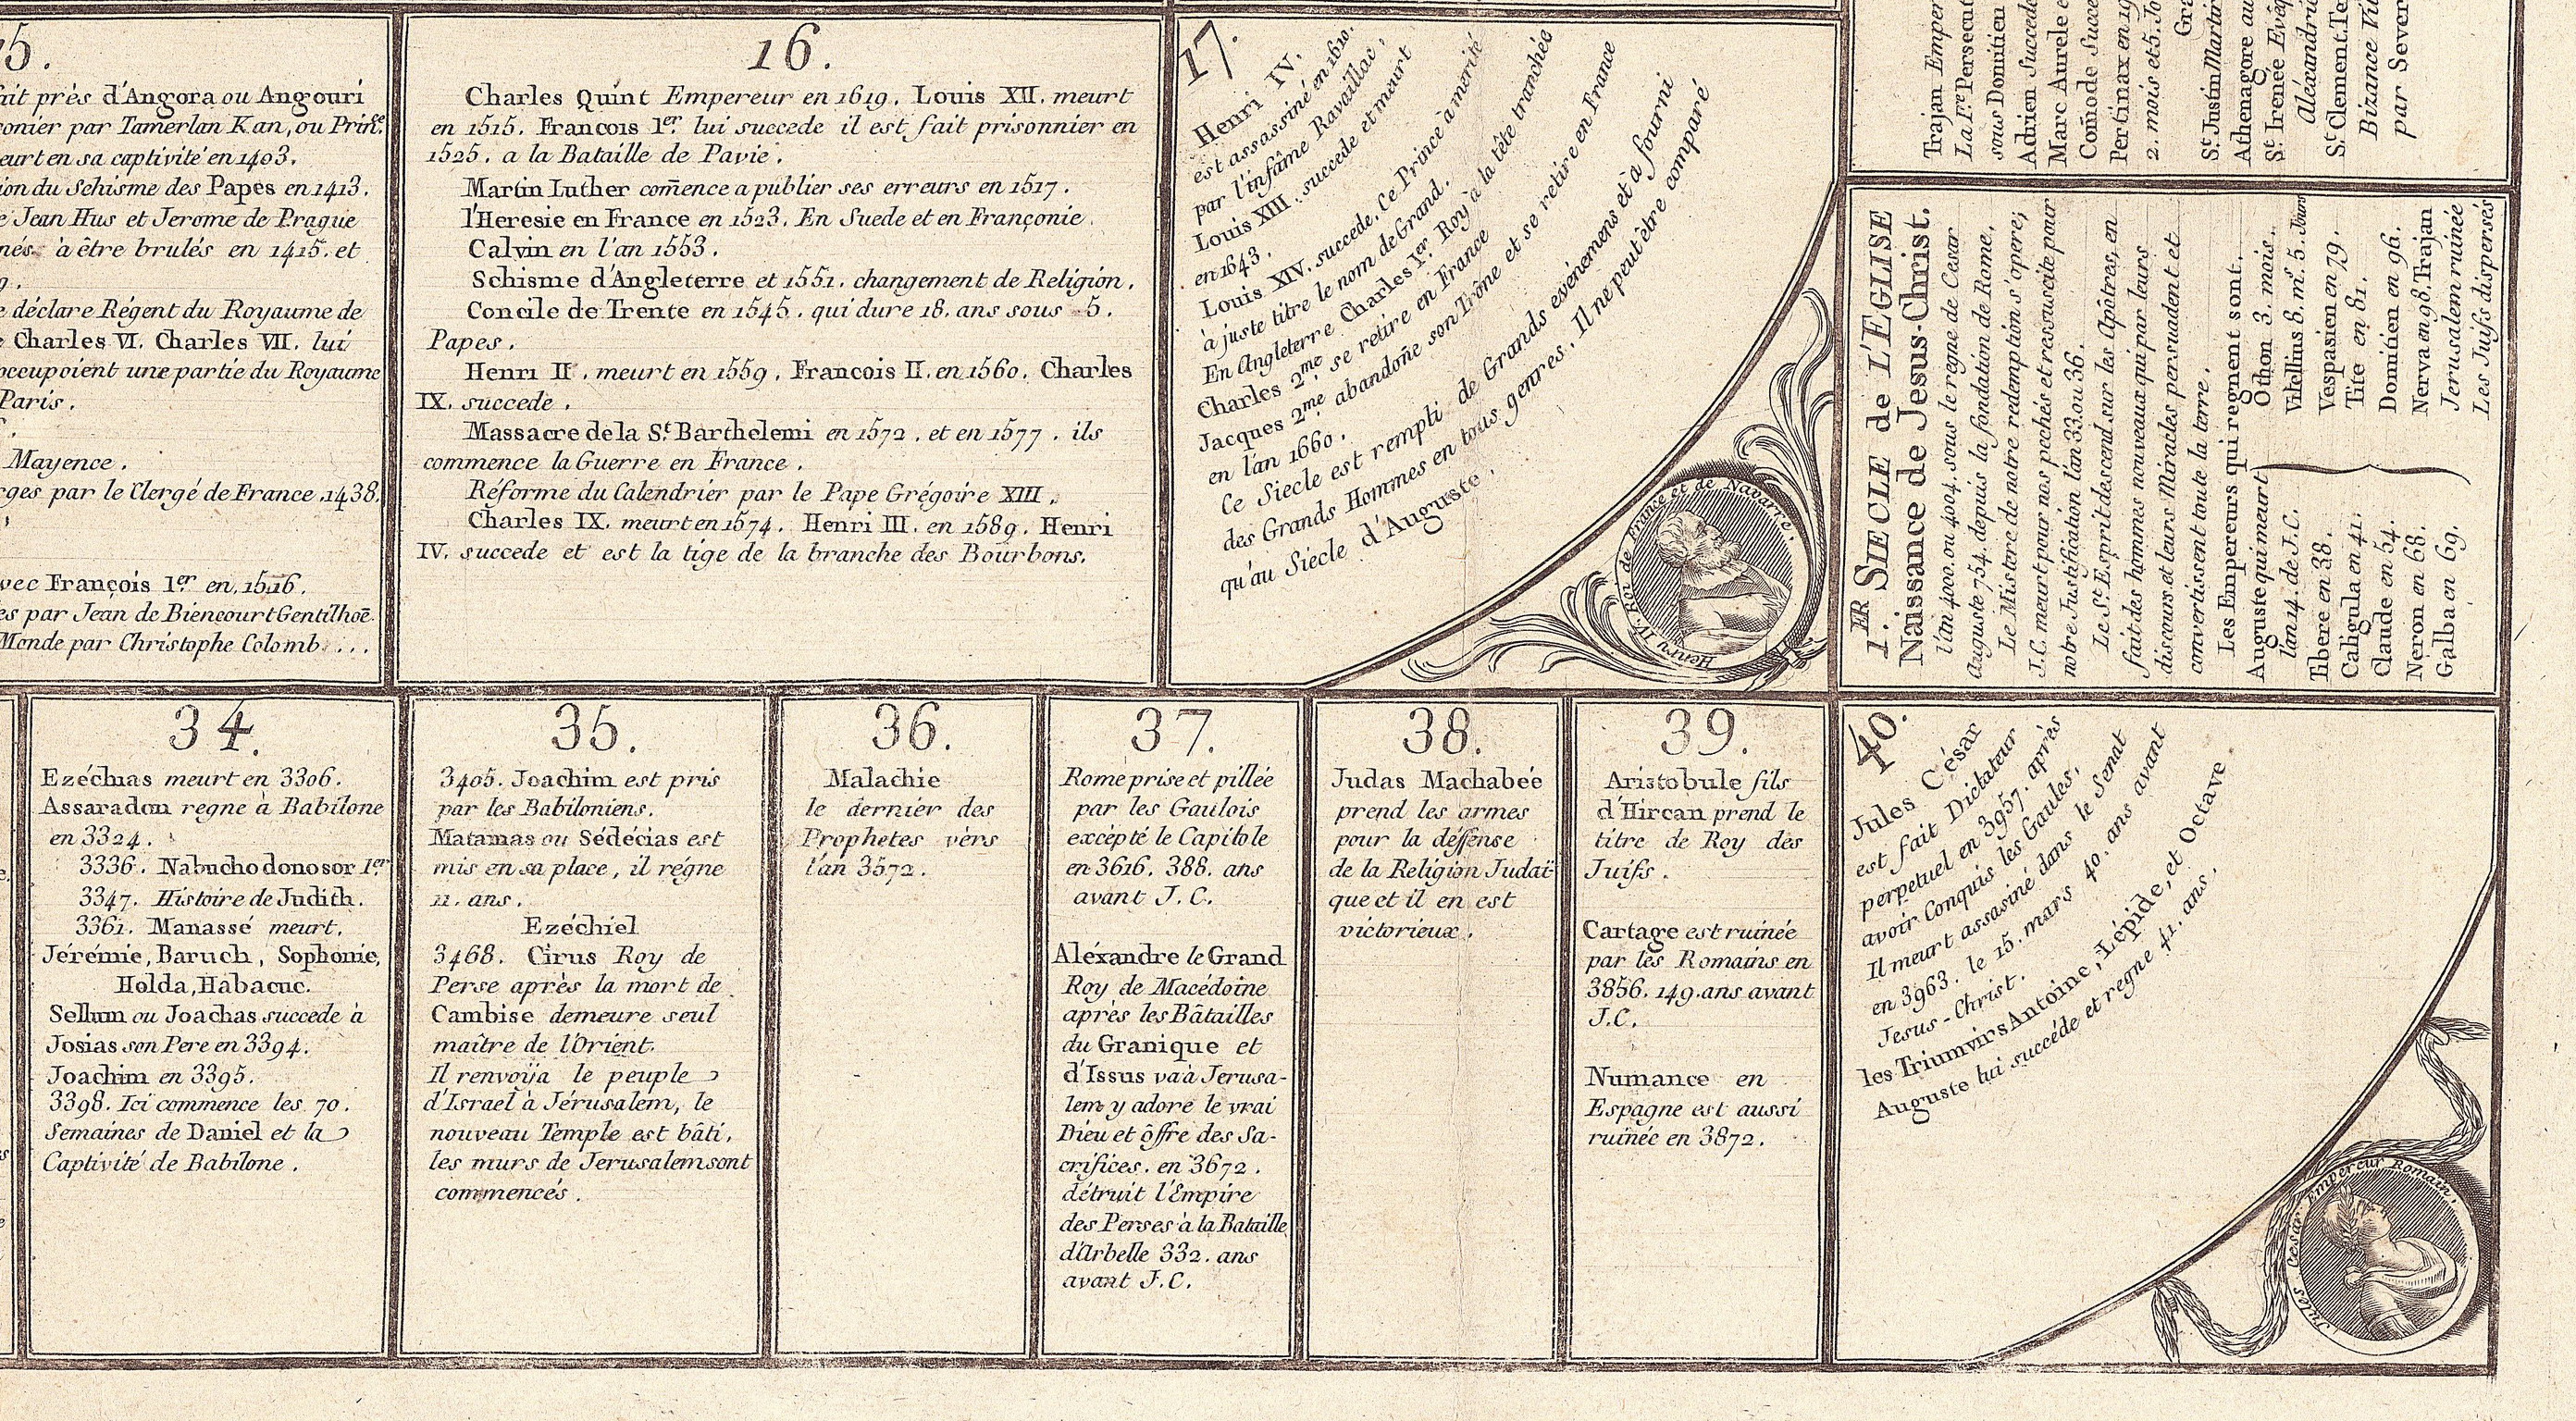 5.
ait près d'Angora ou Angouri
onier par Tamerlan Kan, ou Prin.ce
eurt en sa captivité en 1403.
ion du Schisme des Papes en 1413.
e Jean Hus et Jerome de Prague
nés à être brulés en 1415. et
9.
e déclare Régent du Royaume de
Charles VI. Charles VII. lui
occupoient une partie du Royaume
Paris.
Mayence.
rges par le Clergé de France 1438.
vec François 1er en 1516.
es par Jean de Biencourt Gentilhoe
Monde par Christophe Colomb ...
16.
Charles Quint Empereur en 1619. Louis XII. meurt
en 1515. Francois 1er. lui succede il est fait prisonnier en
1525. a la Bataille de Pavie.
Martin Luther com̄ence a publier ses erreurs en 1517.
l'Heresie en France en 1523. En Suede et en Françonie
Calvin en l'an 1553.
Schisme d'Angleterre et 1551. changement de Religion.
Concile de Trente en 1545. qui dure 18. ans sous 5.
Papes.
Henri II. meurt en 1559. Francois II. en 1560. Charles
IX. succede.
Massacre de la St. Barthelemi en 1572. et en 1577. ils
commence la Guerre en France.
Réforme du Calendrier par le Pape Grégoire XIII.
Charles IX. meurt en 1574. Henri III. en 1589. Henri
IV. succede et est la tige de la branche des Bourbons.
17.
Henri IV,
est assassiné en 1610.
par l'infâme Ravaillac,
Louis XIII. succede et meurt
en 1643.
Louis XIV. succede. Ce Prince à mérité
à juste titre le nom de Grand.
En Angleterre Charles 1er. Roy à la tête tranchée
Charles 2me. se retire en France
Jacques 2me. abandoñe son Trône et se retire en France
en l'an 1660.
Ce Siecle est rempli de Grands evénemens et à fourni
des Grands Hommes en tous genres. Il ne peut être comparé
qu'au Siécle d'Auguste.
Henri IV. Roi de France et de Navarre,
Trajan Emper
La 1re. Persecut
sous Domitien
Adrien Succede
Marc Aurele e
Com̄ode Succe
Pertinax en 19
2. mois et 5. Jo
Gra
St. Justin Martir
Athenagore au
St. Irenée Evéq
Aléxandri
St. Clement. Te
Bizance Vil
par Sever
1.ER SIECLE de L'EGLISE
Naissance de Jesus-Christ.
l'an 4000. ou 4004. sous le regne de Cesar
Auguste 754. depuis la fondation de Rome.
Le Mistere de notre redemption s'opere;
J.C. meurt pour nos pechés et ressuscite pour
notre Justification l'an 33. ou 36.
Le St. Esprit descend sur les Apôtres, en
fait des hommes nouveaux qui par leurs
discours et leurs Miracles persuadent et
convertissent toute la terre.
Les Empereurs qui regnent sont.
Auguste qui meurt
l'an 14. de J.C.
Tibere en 38.
Caligula en 41.
Claude en 54.
Neron en 68.
Galba en 69.
Othon 3. mois.
Vitellius 8. ms. 5. Jours
Vespasien en 79.
Tite en 81.
Domitien en 96.
Nerva en 98. Trajan
Jerusalem ruinée
Les Juifs dispersés
34.
Ezéchias meurt en 3306.
Assaradon regne à Babilone
en 3324.
3336. Nabuchodonosor 1er
3347. Histoire de Judith.
3361. Manassé meurt.
Jérémie, Baruch, Sophonie,
Holda, Habacuc.
Sellum ou Joachas succede à
Josias son Pere en 3394.
Joachim en 3395.
3398. Ici commence les 70.
Semaines de Daniel et la
Captivité de Babilone.
35.
3405. Joachim est pris
par les Babiloniens.
Matamas ou Sédécias est
mis en sa place, il régne
11. ans.
Ezéchiel
3468. Cirus Roy de
Perse après la mort de
Cambise demeure seul
maître de l'Orient.
Il renvoÿa le peuple
d'Israel à Jérusalem, le
nouveau Temple est bâti,
les murs de Jerusalem sont
commencés.
36.
Malachie
le dernier des
Prophetes vèrs
l'an 3572.
37.
Rome prise et pillée
par les Gaulois
excepté le Capitole
en 3616. 388. ans
avant J.C.
Aléxandre le Grand
Roy de Macédoine
après les Bâtailles
du Granique et
d'Issus va à Jerusa-
lem y adore le vrai
Dieu et ôffre des Sa-
crifices. en 3672.
détruit l'Empire
des Perses à la Bataille
d'Arbelle 332. ans
avant J.C.
38.
Judas Machabeé
prend les armes
pour la déffense
de la Religion Judaï-
que et il en est
victorieux.
39.
Aristobule fils
d'Hircan prend le
titre de Roy des
Juifs.
Cartage est ruinée
par les Romains en
3856. 149. ans avant
J.C.
Numance en
Espagne est aussi
ruinée en 3872.
40.
Jules César
est fait Dictateur
perpetuel en 3957. après
avoir Conquis les Gaules,
Il meurt assasiné dans le Senat
en 3963. le 15. mars 40. ans avant
Jesus-Christ.
les Triumvirs Antoine, Lépide, et Octave
Auguste lui succéde et regne 41. ans.
Jules Cesar Empereur Romain.